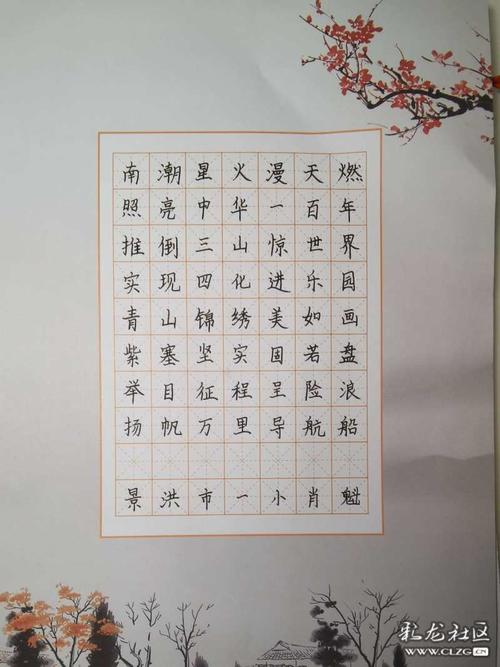 南潮星火漫天燃
照亮中华一百年
推倒三山惊世界
实现四化进乐国
青山锦绣美如画
紫塞坚实固若盘
举目征程呈险浪
扬帆万里导航船
景洪市一小肖魁
彩龙社区
WWW.CLZG.CN